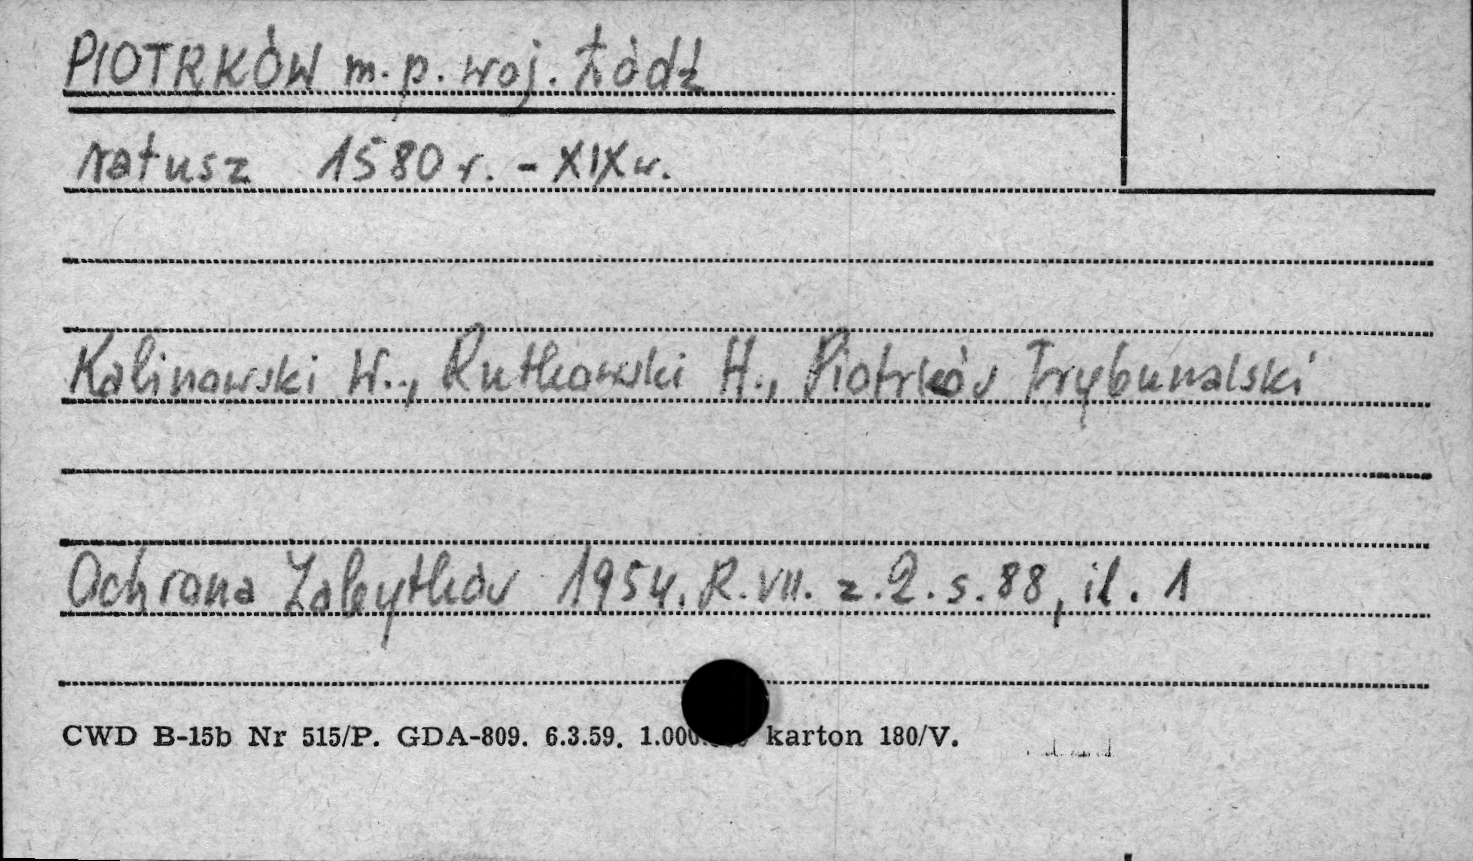 PIOTRKÓW m. p. woj. Łódź
ratusz 1580 r. - XIX w.
Kalinowski W., Rutkowski H., Piotrków Trybunalski
Ochrona Zabytków 1954. R. VII. z. 2. s. 88, il. 1
CWD B-15b Nr 515/P. GDA-809. 6.3.59. karton 180/V.